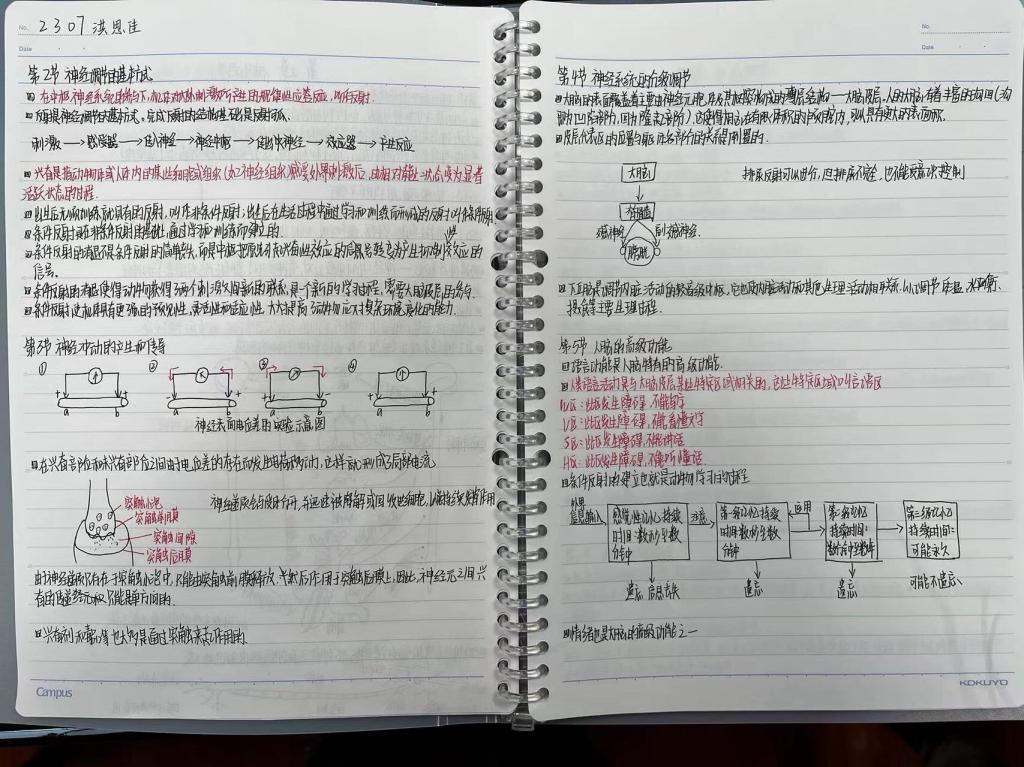 No. 2307 洪思佳
Date
第2节 神经调节的基本方式
在中枢神经系统的参与下,机体对内外刺激所产生的规律性应答反应,叫作反射.
反射是神经调节的基本方式,完成反射的结构基础是反射弧.
刺激→感受器→传入神经→神经中枢→传出神经→效应器→产生反应
兴奋是指动物体或人体内的某些细胞或组织(如神经组织)感受外界刺激后,由相对静止状态变为显著
活跃状态的过程.
出生后无须训练就具有的反射,叫作非条件反射;出生后在生活过程中通过学习和训练而形成的反射叫作条件反射.
条件反射是在非条件反射的基础上,通过学习和训练而建立的.
条件反射的消退不是条件反射的简单丧失,而是中枢把原先引起兴奋性效应的信号转变为产生抑制性效应的
信号.
条件反射的消退使得动物获得了两个刺激间新的联系,是一个新的学习过程,需要大脑皮层的参与.
条件反射使机体具有更强的预见性、灵活性和适应性,大大提高了动物应对复杂环境变化的能力.
第3节 神经冲动的产生和传导
① ② ③ ④
+ + - + + - + +
a b a b a b a b
神经表面电位差的实验示意图
在兴奋部位和未兴奋部位之间由于电位差的存在而发生电荷移动,这样就形成了局部电流
突触小泡
突触前膜
突触间隙
突触后膜
神经递质会与受体分开,并迅速被降解或回收进细胞,以免持续发挥作用
由于神经递质只存在于突触小泡中,只能由突触前膜释放,然后作用于突触后膜上,因此,神经元之间兴
奋的传递只能是单方向的.
兴奋剂和毒品等也大多是通过突触来起作用的.
Campus
No.
Date
第4节 神经系统的分级调节
大脑的表面覆盖着主要由神经元胞体及其树突构成的薄层结构——大脑皮层,人的大脑有着丰富的沟回(沟
即为凹陷部分,回为隆起部分),这使得大脑在有限体积的颅腔内,可以具有更大的表面积.
皮层代表区的位置与躯体各部分的关系是倒置的.
大脑
脊髓
交感神经 副交感神经
膀胱
排尿反射可以进行,但排尿不完全,也不能受意识控制
下丘脑是调节内脏活动的较高级中枢,它也使内脏活动和其他生理活动相联系,以调节体温、水平衡、
摄食等主要生理过程.
第5节 人脑的高级功能
语言功能是人脑特有的高级功能.
人类语言活动是与大脑皮层某些特定区域相关的,这些特定区域叫言语区
W区:此区发生障碍,不能写字
V区:此区发生障碍,不能看懂文字
S区:此区发生障碍,不能讲话
H区:此区发生障碍,不能听懂话
条件反射的建立也就是动物学习的过程
外界信息输入
感觉性记忆持续时间:数秒至数分钟
注意
第一级记忆持续时间:数秒至数分钟
运用
第二级记忆持续时间:
第三级记忆持续时间:可能永久
遗忘 信息丢失
遗忘
遗忘
可能不遗忘
情绪也是大脑的高级功能之一
KOKUYO